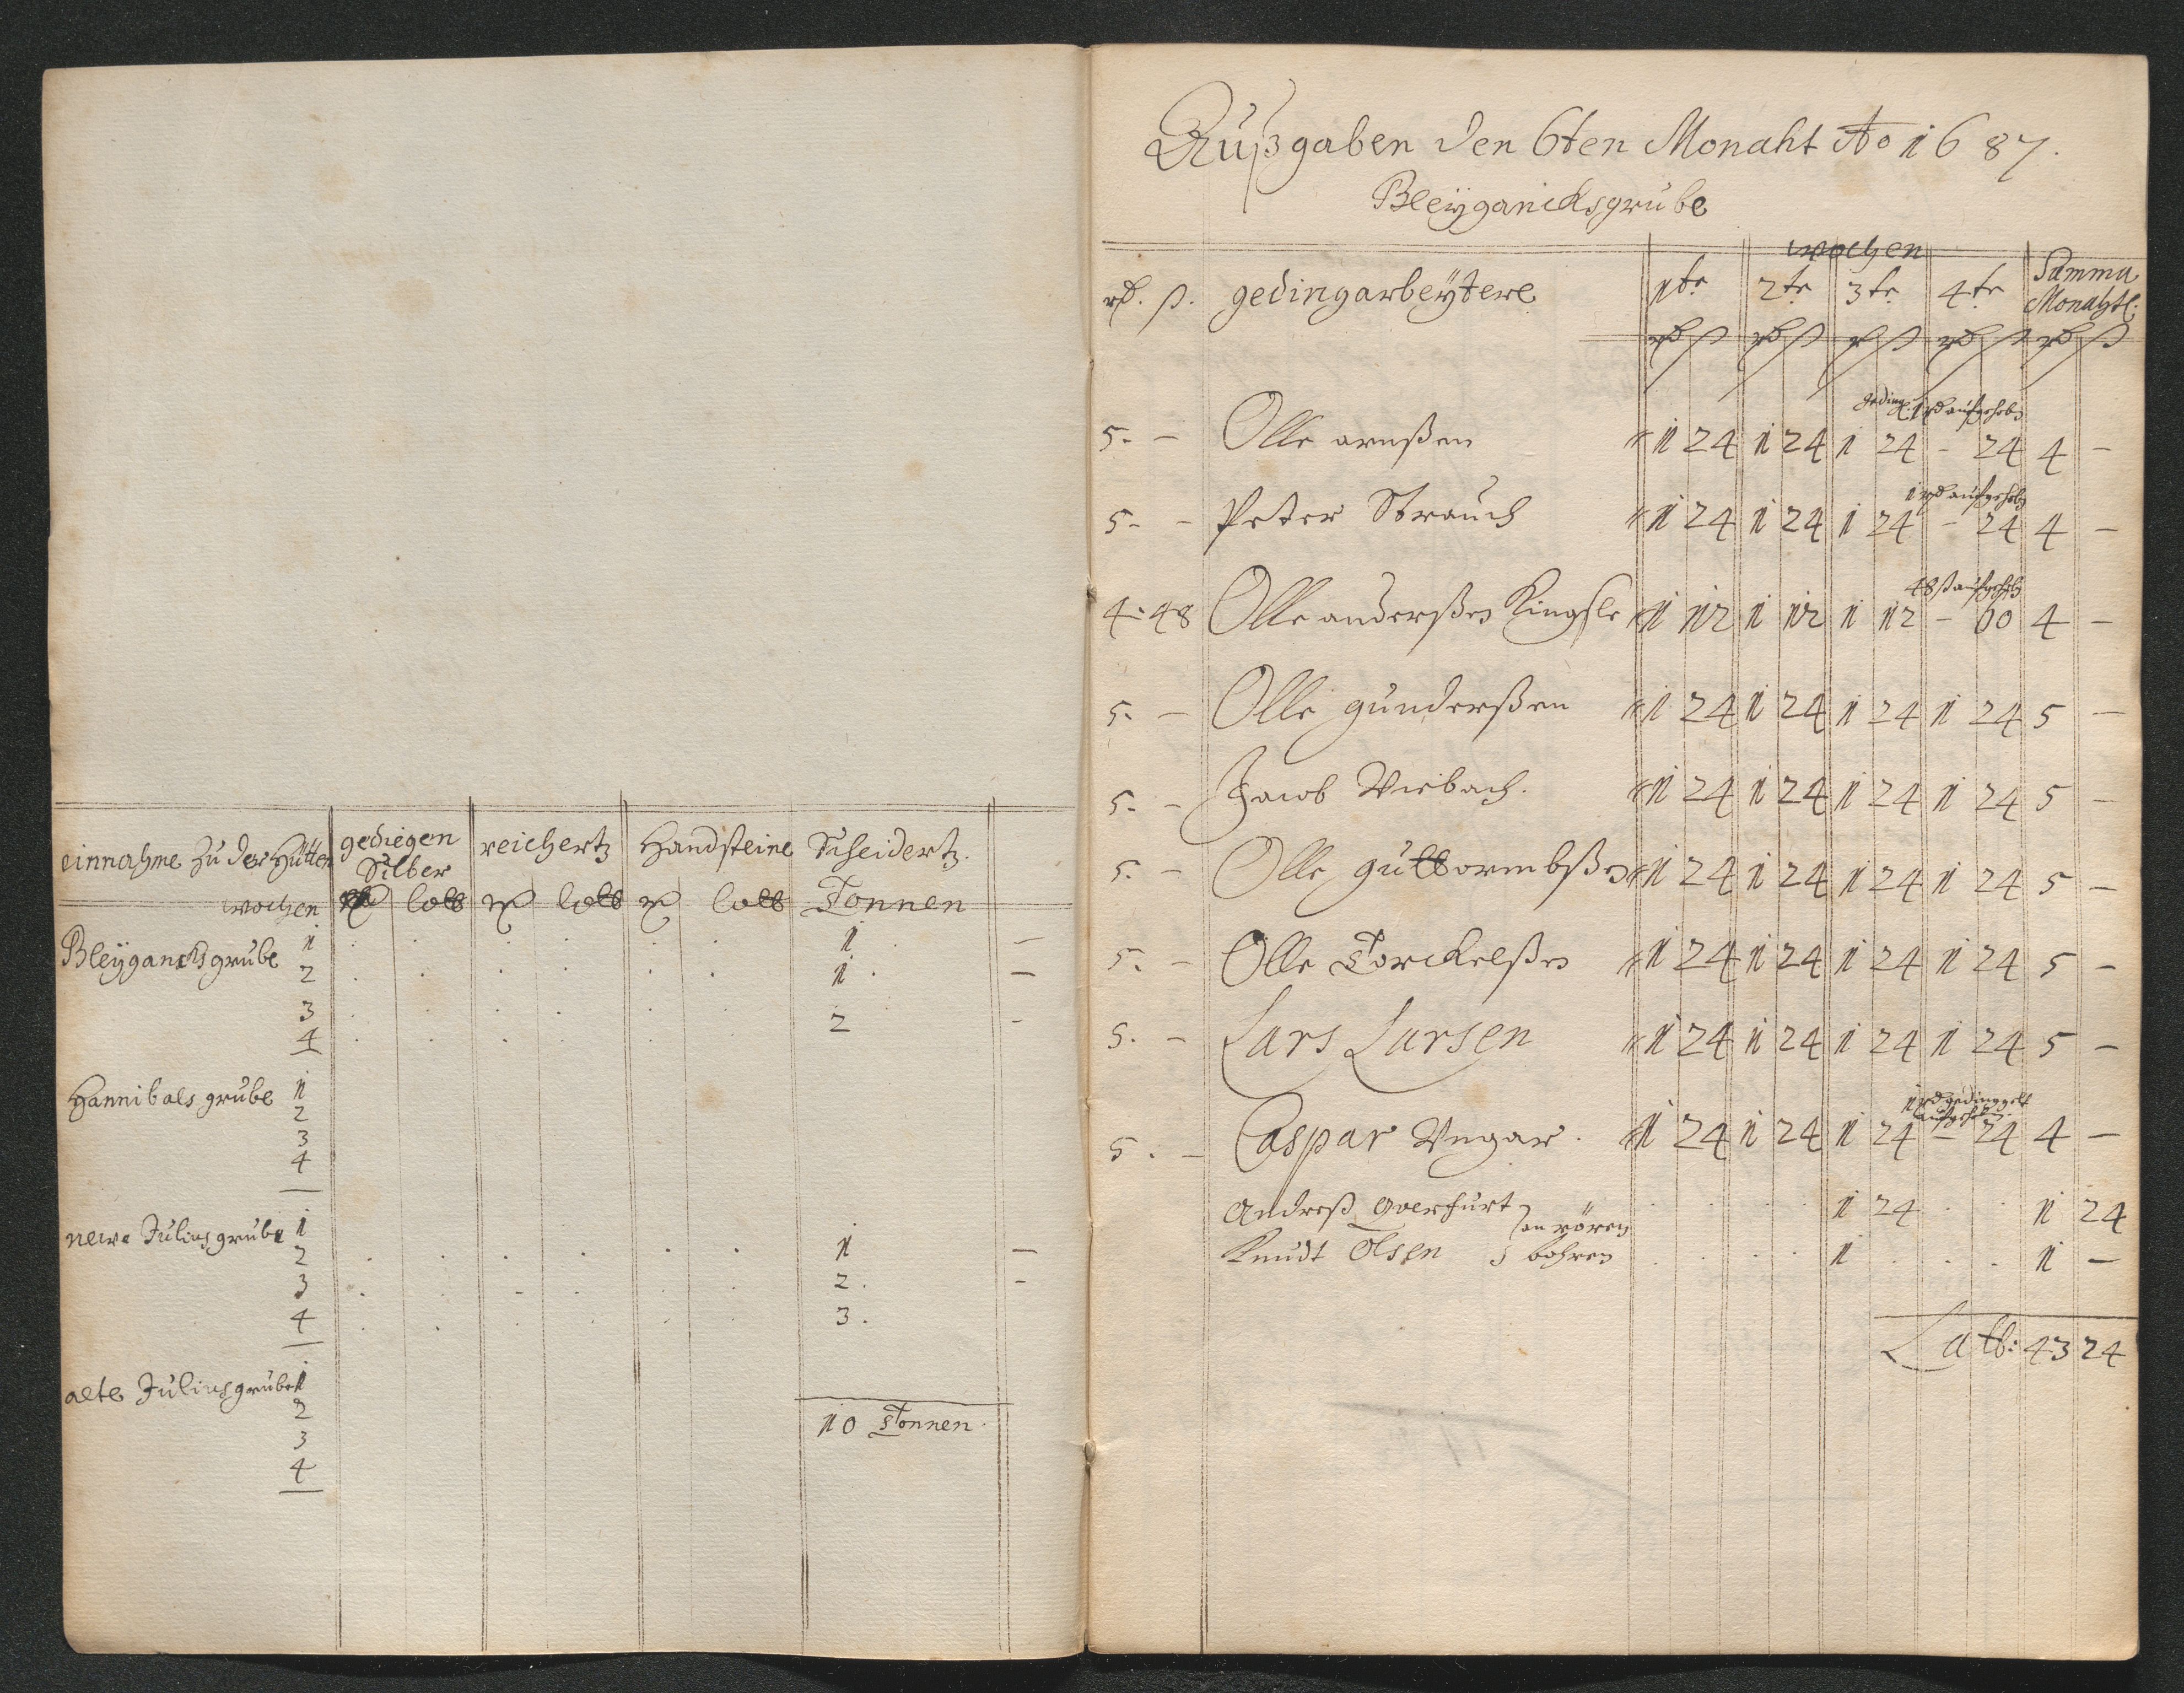 einnahme zu der Hütten gediegen Silber reichertz Handsteine Scheidertz.
wochen lott lott lott Tonnen
Bleygancksgrube 1 . . . . . . 1 . –
2 . . . . . . 1 . –
3 . . . . . . 2 –
4 . . . . .
Hannibals grube 1
2
3
4
newe Juliusgrube 1
2 . . . . . . 1 –
3 . . - . . . 2 . –
4 . . . . . . 3 .
alte Juliusgrube 1
2
10 Tonnen.
3
4
Außgaben den 6ten Monaht Ao 1687.
Bleygancksgrube
wochen
rd. ß. gedingarbeytere 1te 2te 3te 4te Summa Monahtl:
rd ß rd ß rd ß rd ß rd ß
geding: 1 rd aufgehobn
5. – Olle arnßen 1 24 1 24 1 24 – 24 4 –
1 rd aufgehobn
5. – Peter Strauch 1 24 1 24 1 24 – 24 4 –
48 ß aufgehobn
4:48 Olle anderßen Kingsle 1 12 1 12 1 12 – 60 4 –
5. – Olle gunderßen 1 24 1 24 1 24 1 24 5 –
5. – Jacob Viebach. 1 24 1 24 1 24 1 24 5 –
5. – Olle guttormbßen 1 24 1 24 1 24 1 24 5 –
5. – Olle Torckelßen 1 24 1 24 1 24 1 24 5 –
5. – Lars Larsen 1 24 1 24 1 24 1 24 5 –
1 rd gedinggelt
aufgehobn
5. – Caspar Ungar. 1 24 1 24 1 24 – 24 4 –
Andreß Querfurt } an rören . . . . 1 24 . . 1 24
Knudt Olsen } bohren . . . . 1 . . . 1 –
Latt: 43 24